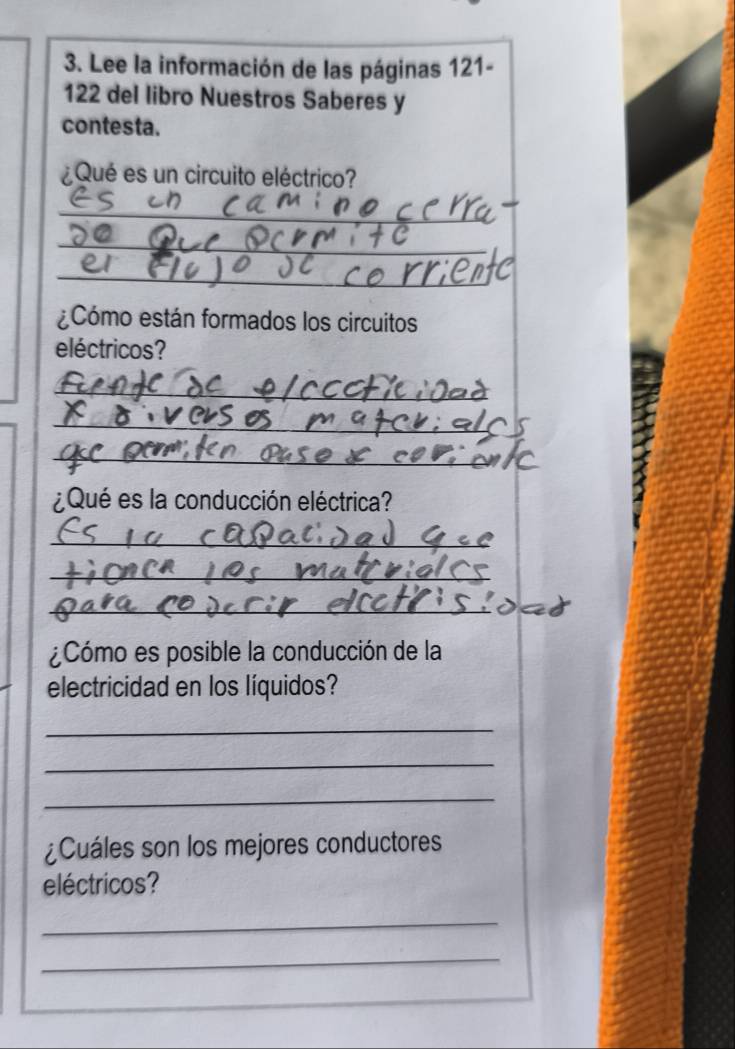 3. Lee la información de las páginas 121-
122 del libro Nuestros Saberes y
contesta.
¿Qué es un circuito eléctrico?
Es un camino cerra-
do Que Permite
el flujo de corriente
¿Cómo están formados los circuitos
eléctricos?
Fuente de electricidad
x diversos materiales
que permiten paso x coriente
¿Qué es la conducción eléctrica?
Es la capacidad que
tienen los materiales
para electrisidad
¿Cómo es posible la conducción de la
electricidad en los líquidos?
¿Cuáles son los mejores conductores
eléctricos?